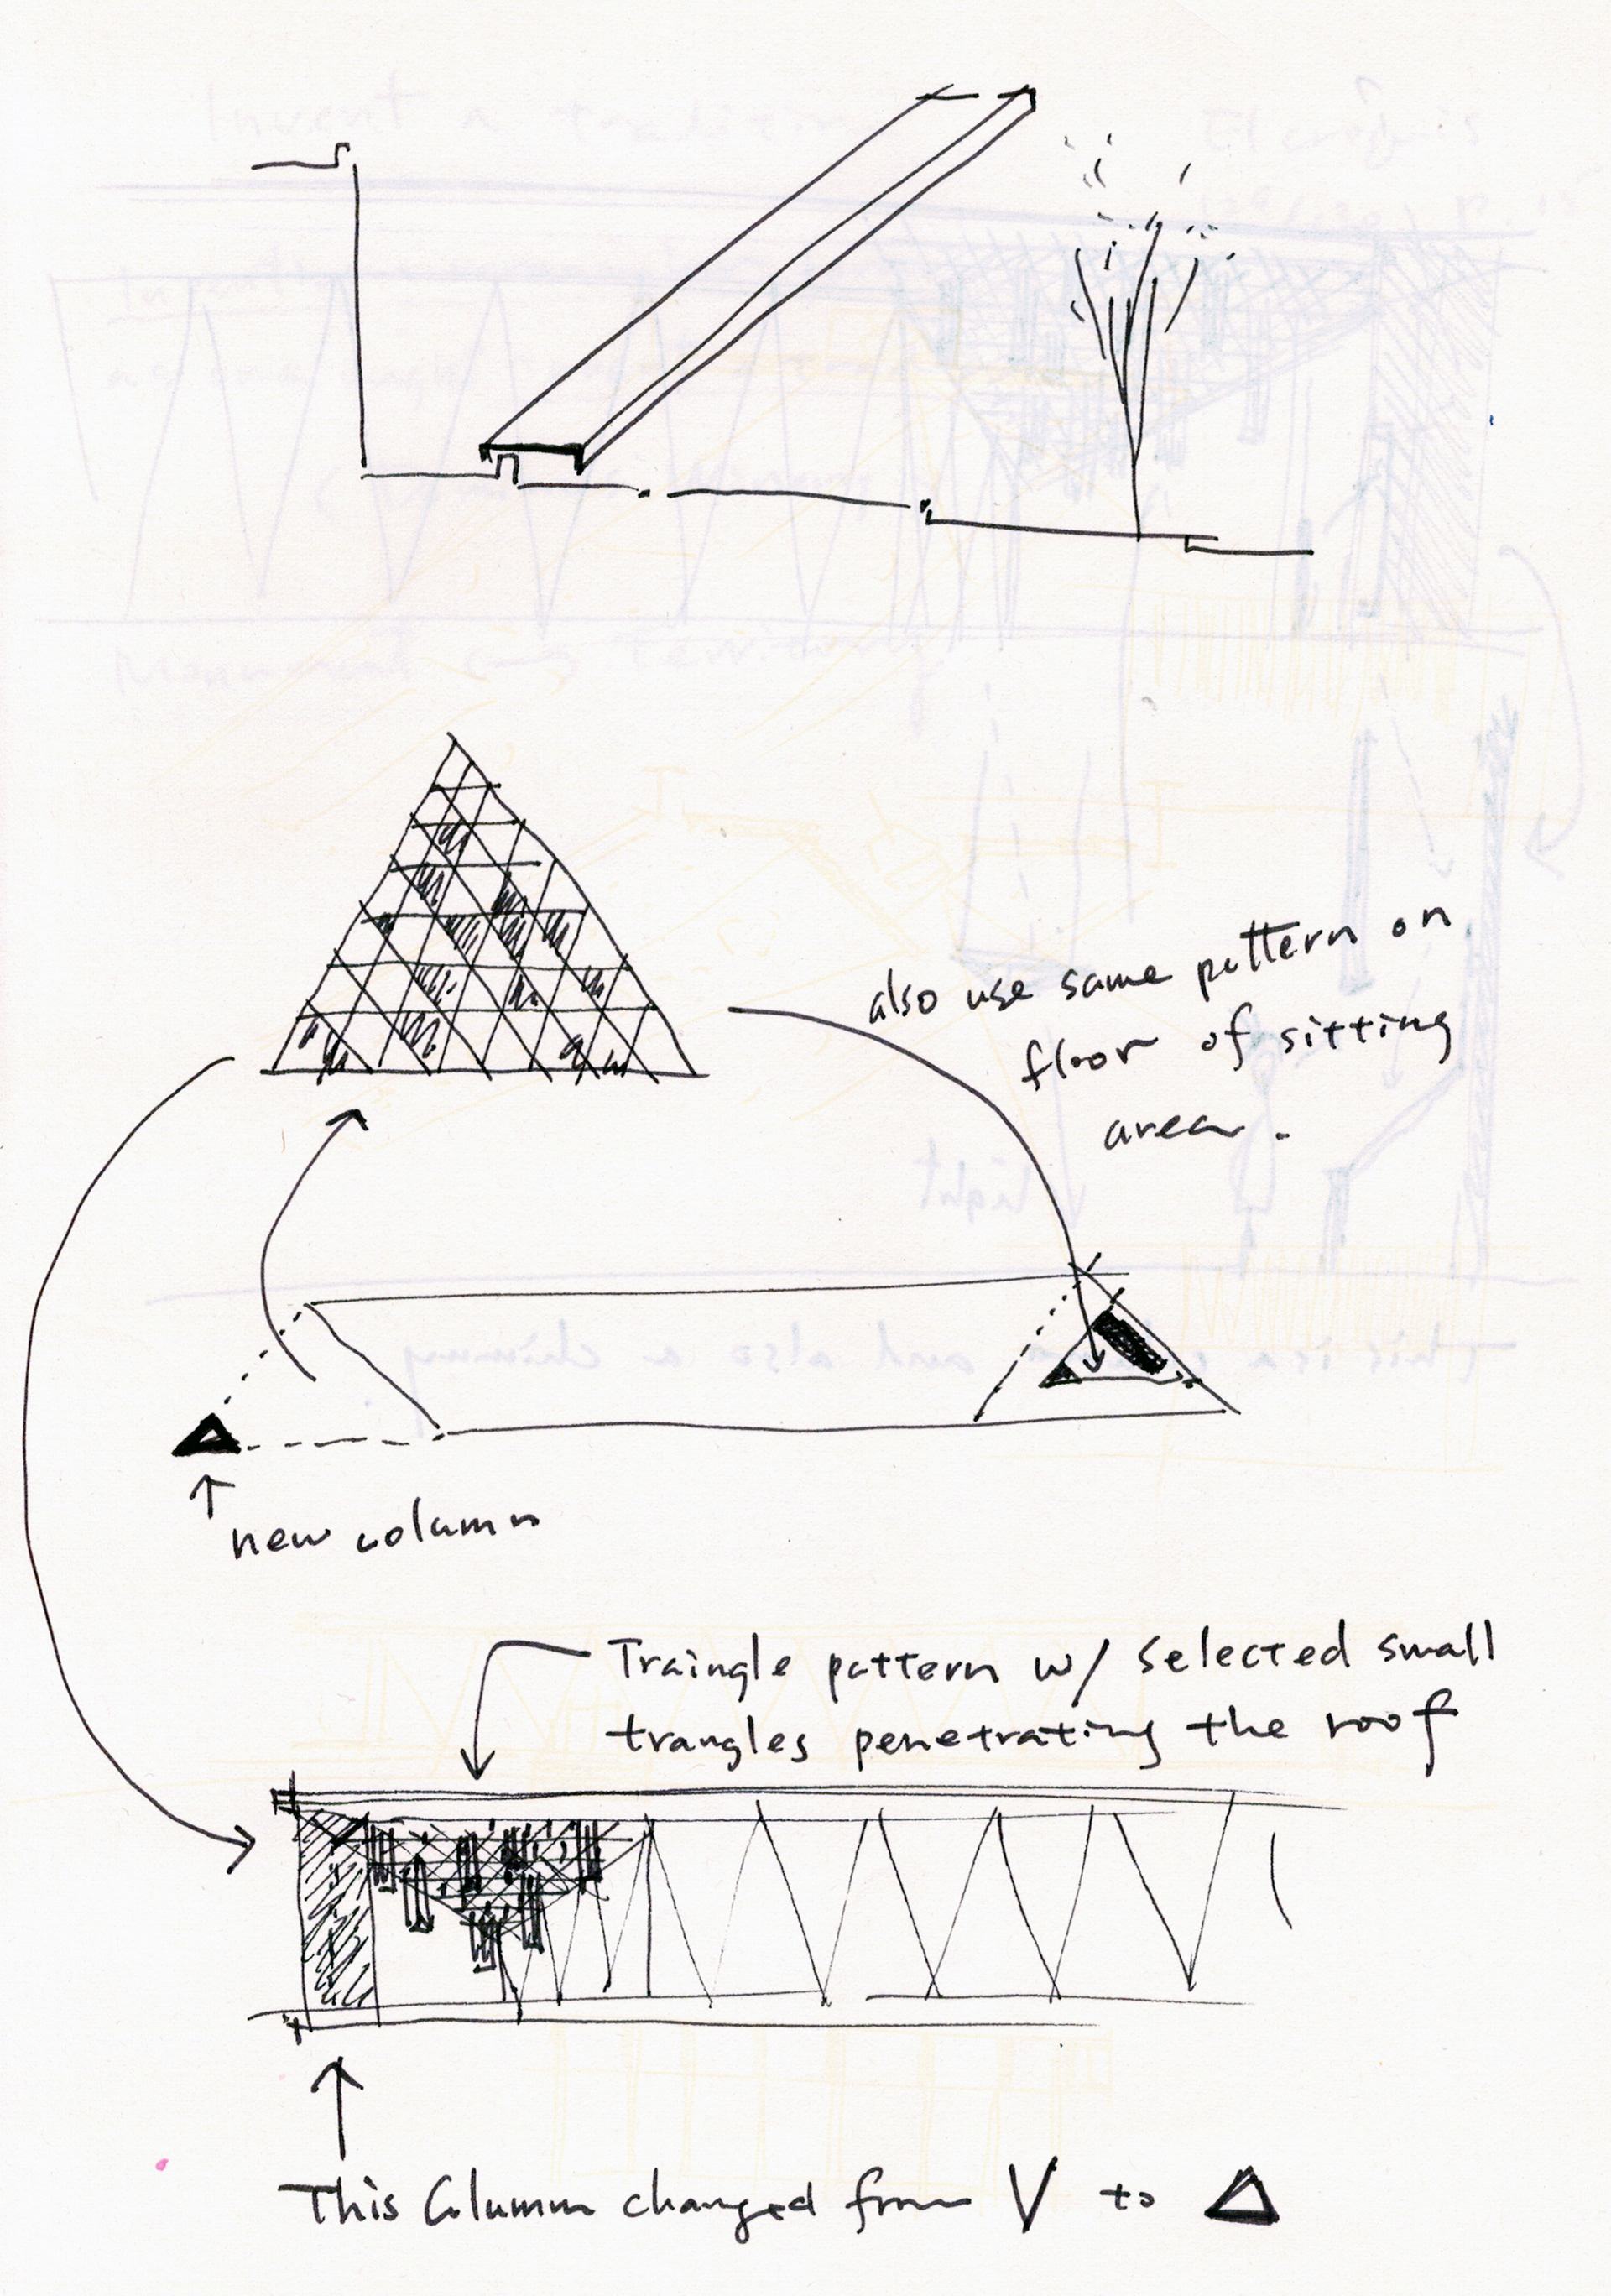 also use same pattern on
floor of sitting
area.
new column
Traingle pattern w/ selected small
trangles penetrating the roof
This Column changed from V to △